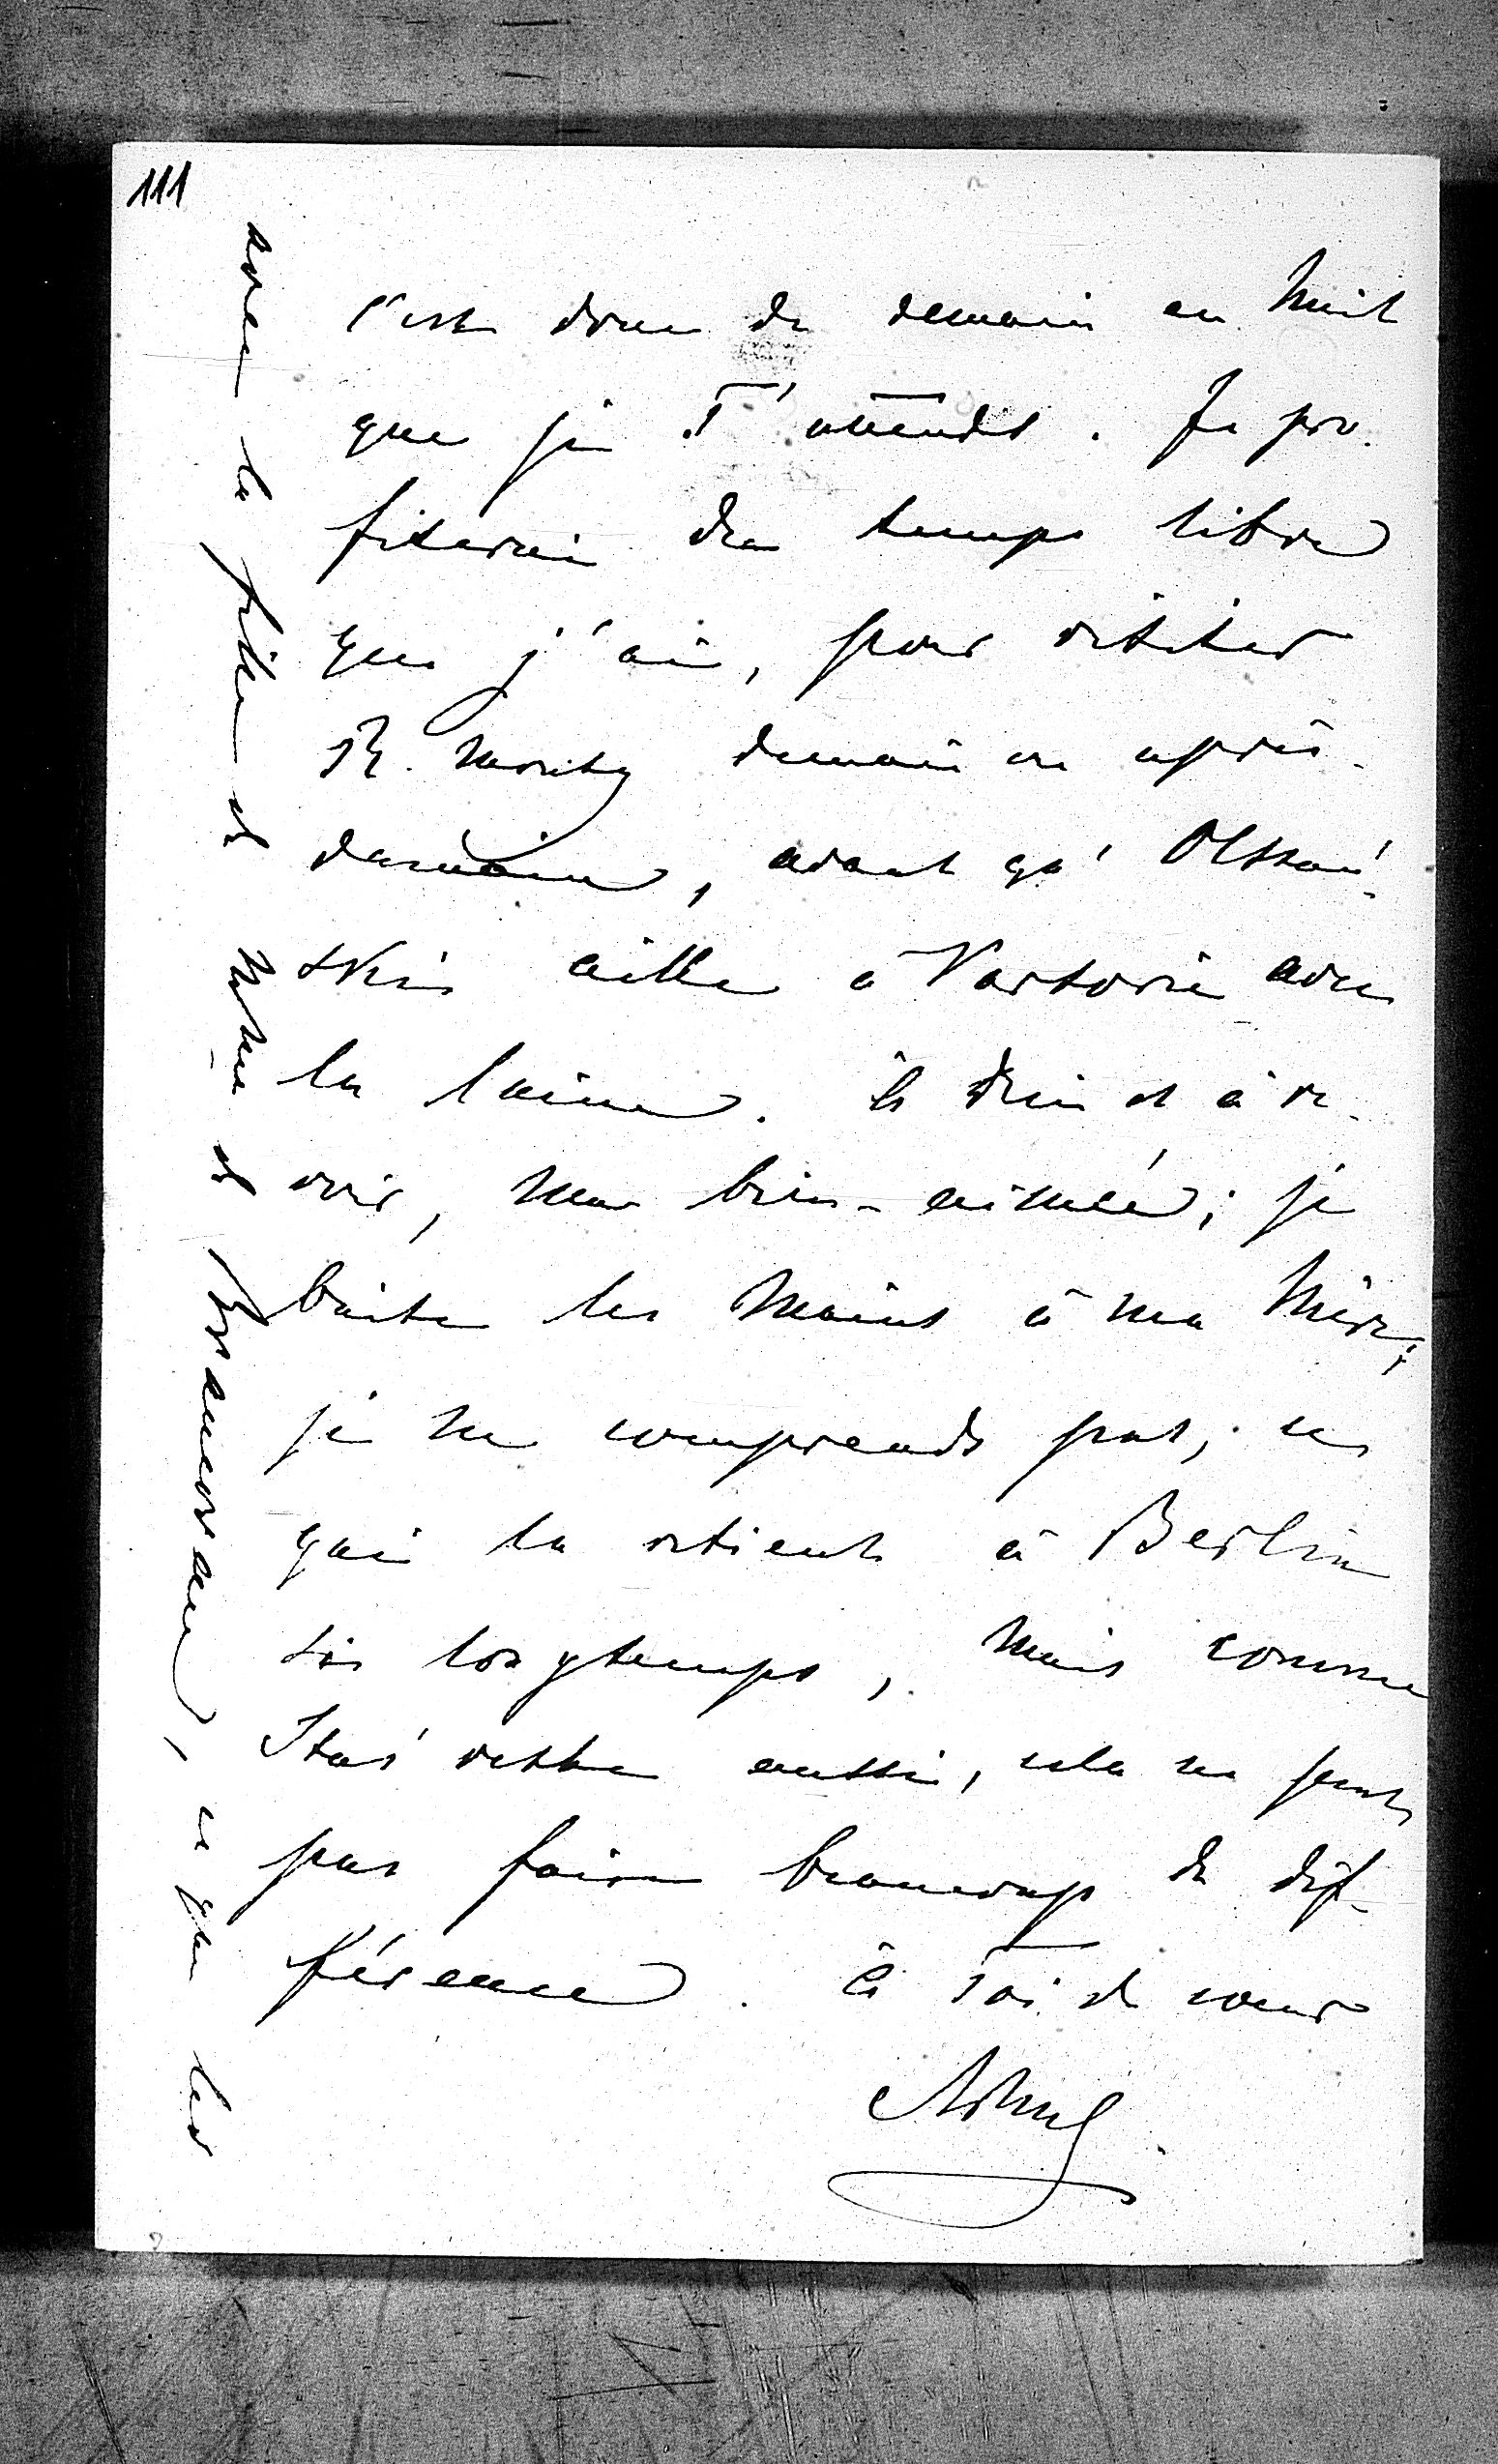 111
c'est donc de demain en huit
que je T'attends. Je pro-
fiterai du temps libre
que j'ai, pour visiter
demain ou après-
demain, avant qu'Olszań-
ski aille à Varsovie avec
la laine. à Dieu et à re-
voir, ma bien-aimée; je
baise les mains à ma Mère;
je ne comprends pas, ce
qui la retient à Berlin
si longtemps, mais comme
Staś reste aussi, cela ne peut
pas faire beaucoup de dif-
férence. à Toi de cœur
avec la et et, ce que les